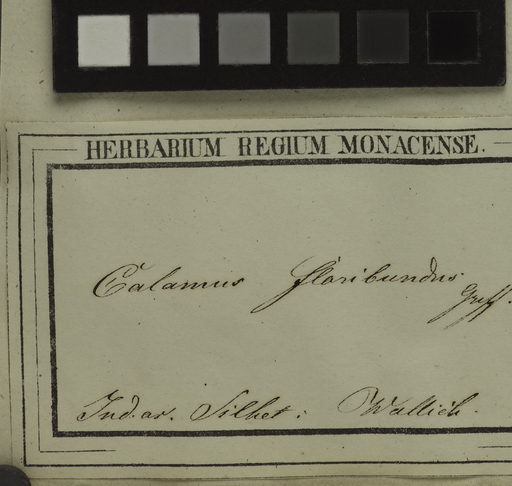 HERBARIUM REGIUM MONACENSE.
Calamus floribundus
Griff.
Ind. or. Silhet: Wallich.